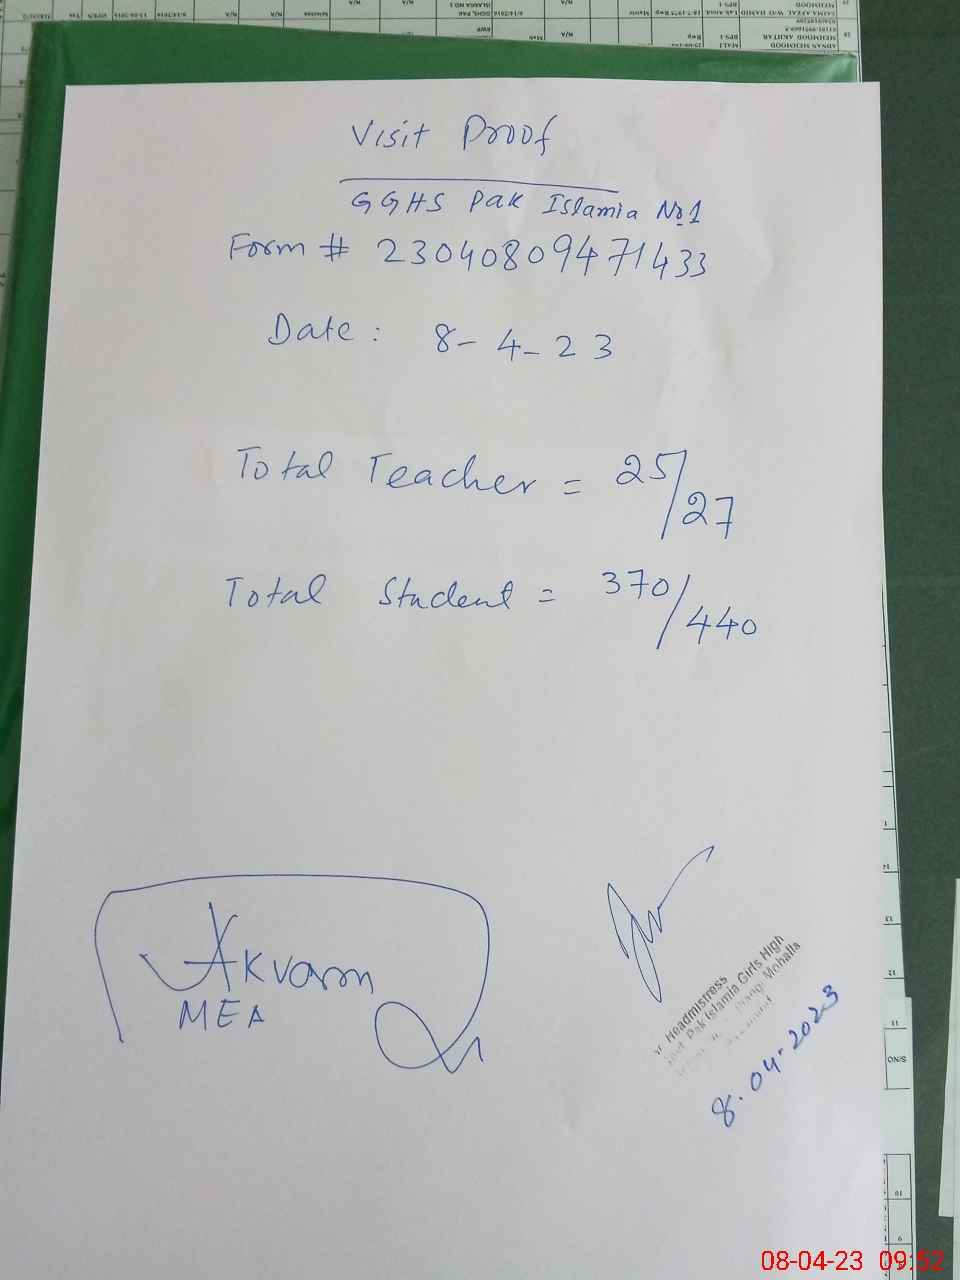 Visit Proof
GGHS Pak Islamia No 1
Form # 23040809471433
Date : 8-4-23
Total Teacher = 25/27
Total Student = 370/440
Akram
MEA
Headmistress
Pak Islamia Girls High
Mohalla
8.04-2023
S/NO
08-04-23 09:52